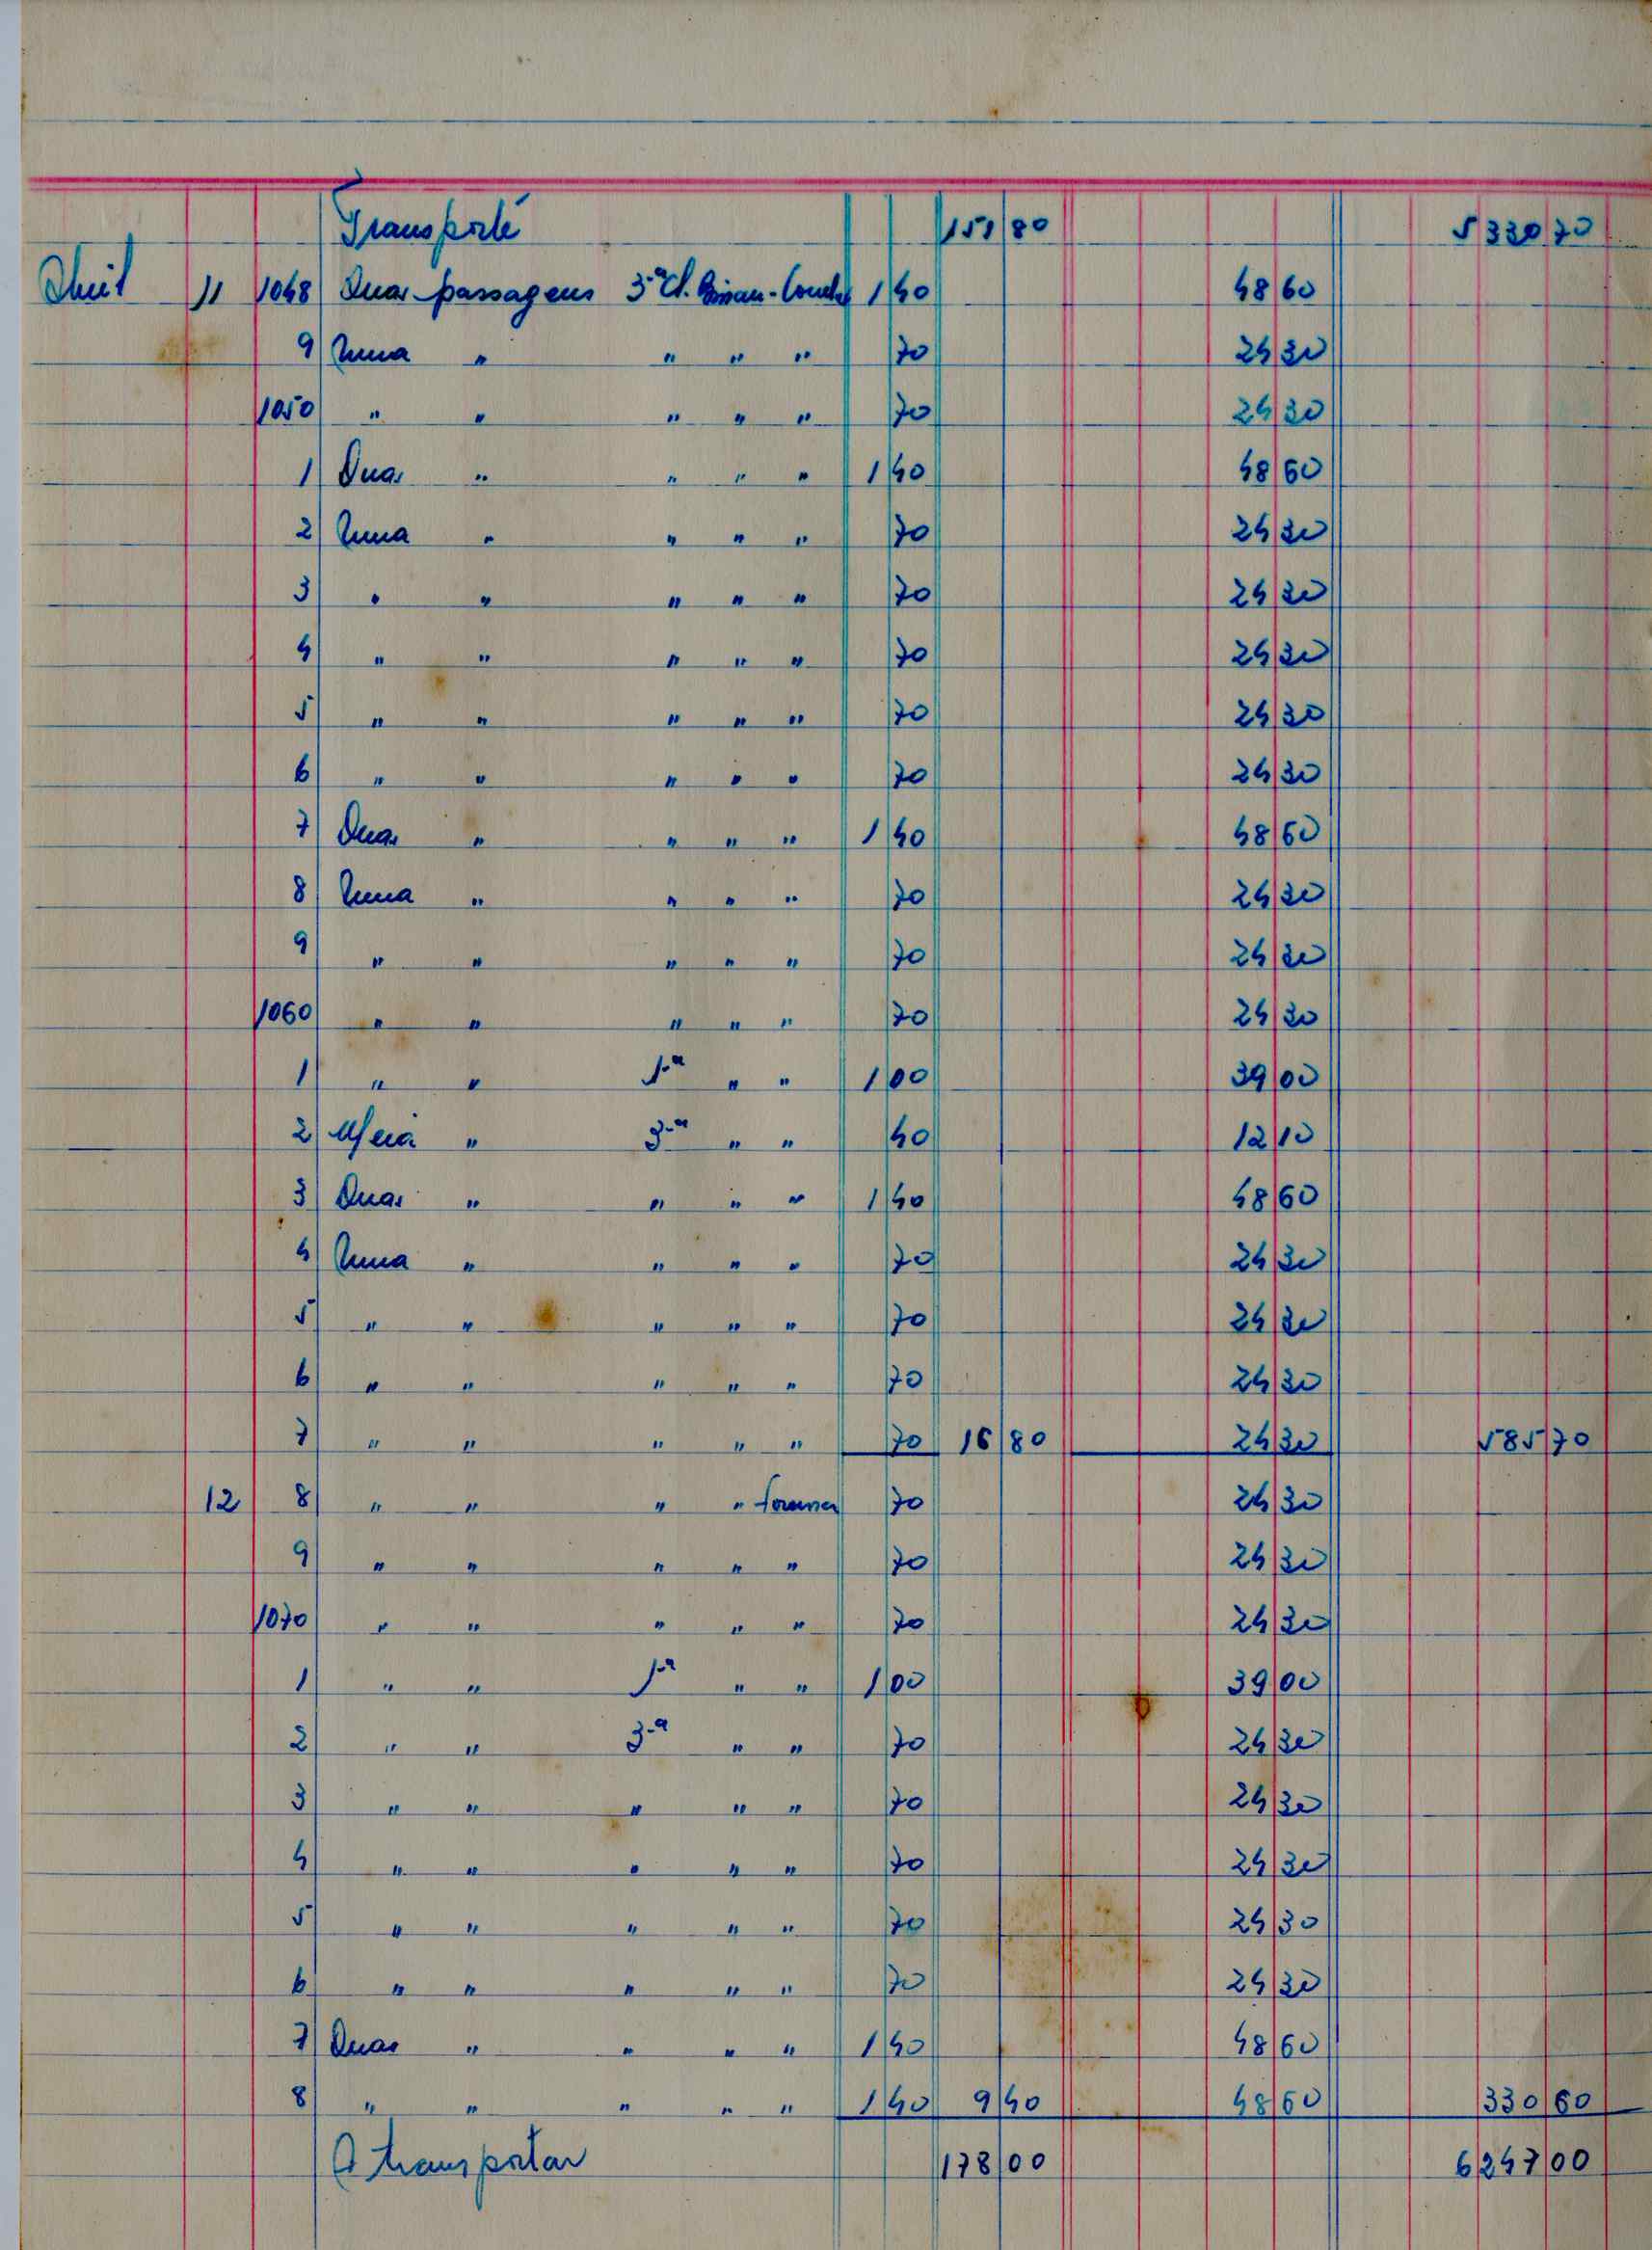 Transporte 151 80 5 330 70
Abril 11 1048 Duas passagens 3.ª Cl. Bissau- 1 40 48 60
9 Uma " " " " 70 24 30
1050 " " " " " 70 24 30
1 Duas " " " " 1 40 48 60
2 Uma " " " " 70 24 30
3 " " " " " 70 24 30
4 " " " " " 70 24 30
5 " " " " " 70 24 30
6 " " " " " 70 24 30
7 Duas " " " " 1 40 48 60
8 Uma " " " " 70 24 30
9 " " " " " 70 24 30
1060 " " " " " 70 24 30
1 " " 1.ª " " 1 00 39 00
2 Meia " 3.ª " " 40 12 10
3 Duas " " " " 1 40 48 60
4 Uma " " " " 70 24 30
5 " " " " " 70 24 30
6 " " " " " 70 24 30
7 " " " " " 70 16 80 24 30 585 70
12 8 " " " " 70 24 30
9 " " " " " 70 24 30
1070 " " " " " 70 24 30
1 " " 1.ª " " 1 00 39 00
2 " " 3.ª " " 70 24 30
3 " " " " " 70 24 30
4 " " " " " 70 24 30
5 " " " " " 70 24 30
6 " " " " " 70 24 30
7 Duas " " " " 1 40 48 60
8 " " " " " 1 40 9 40 48 60 330 60
A transportar 178 00 6 247 00